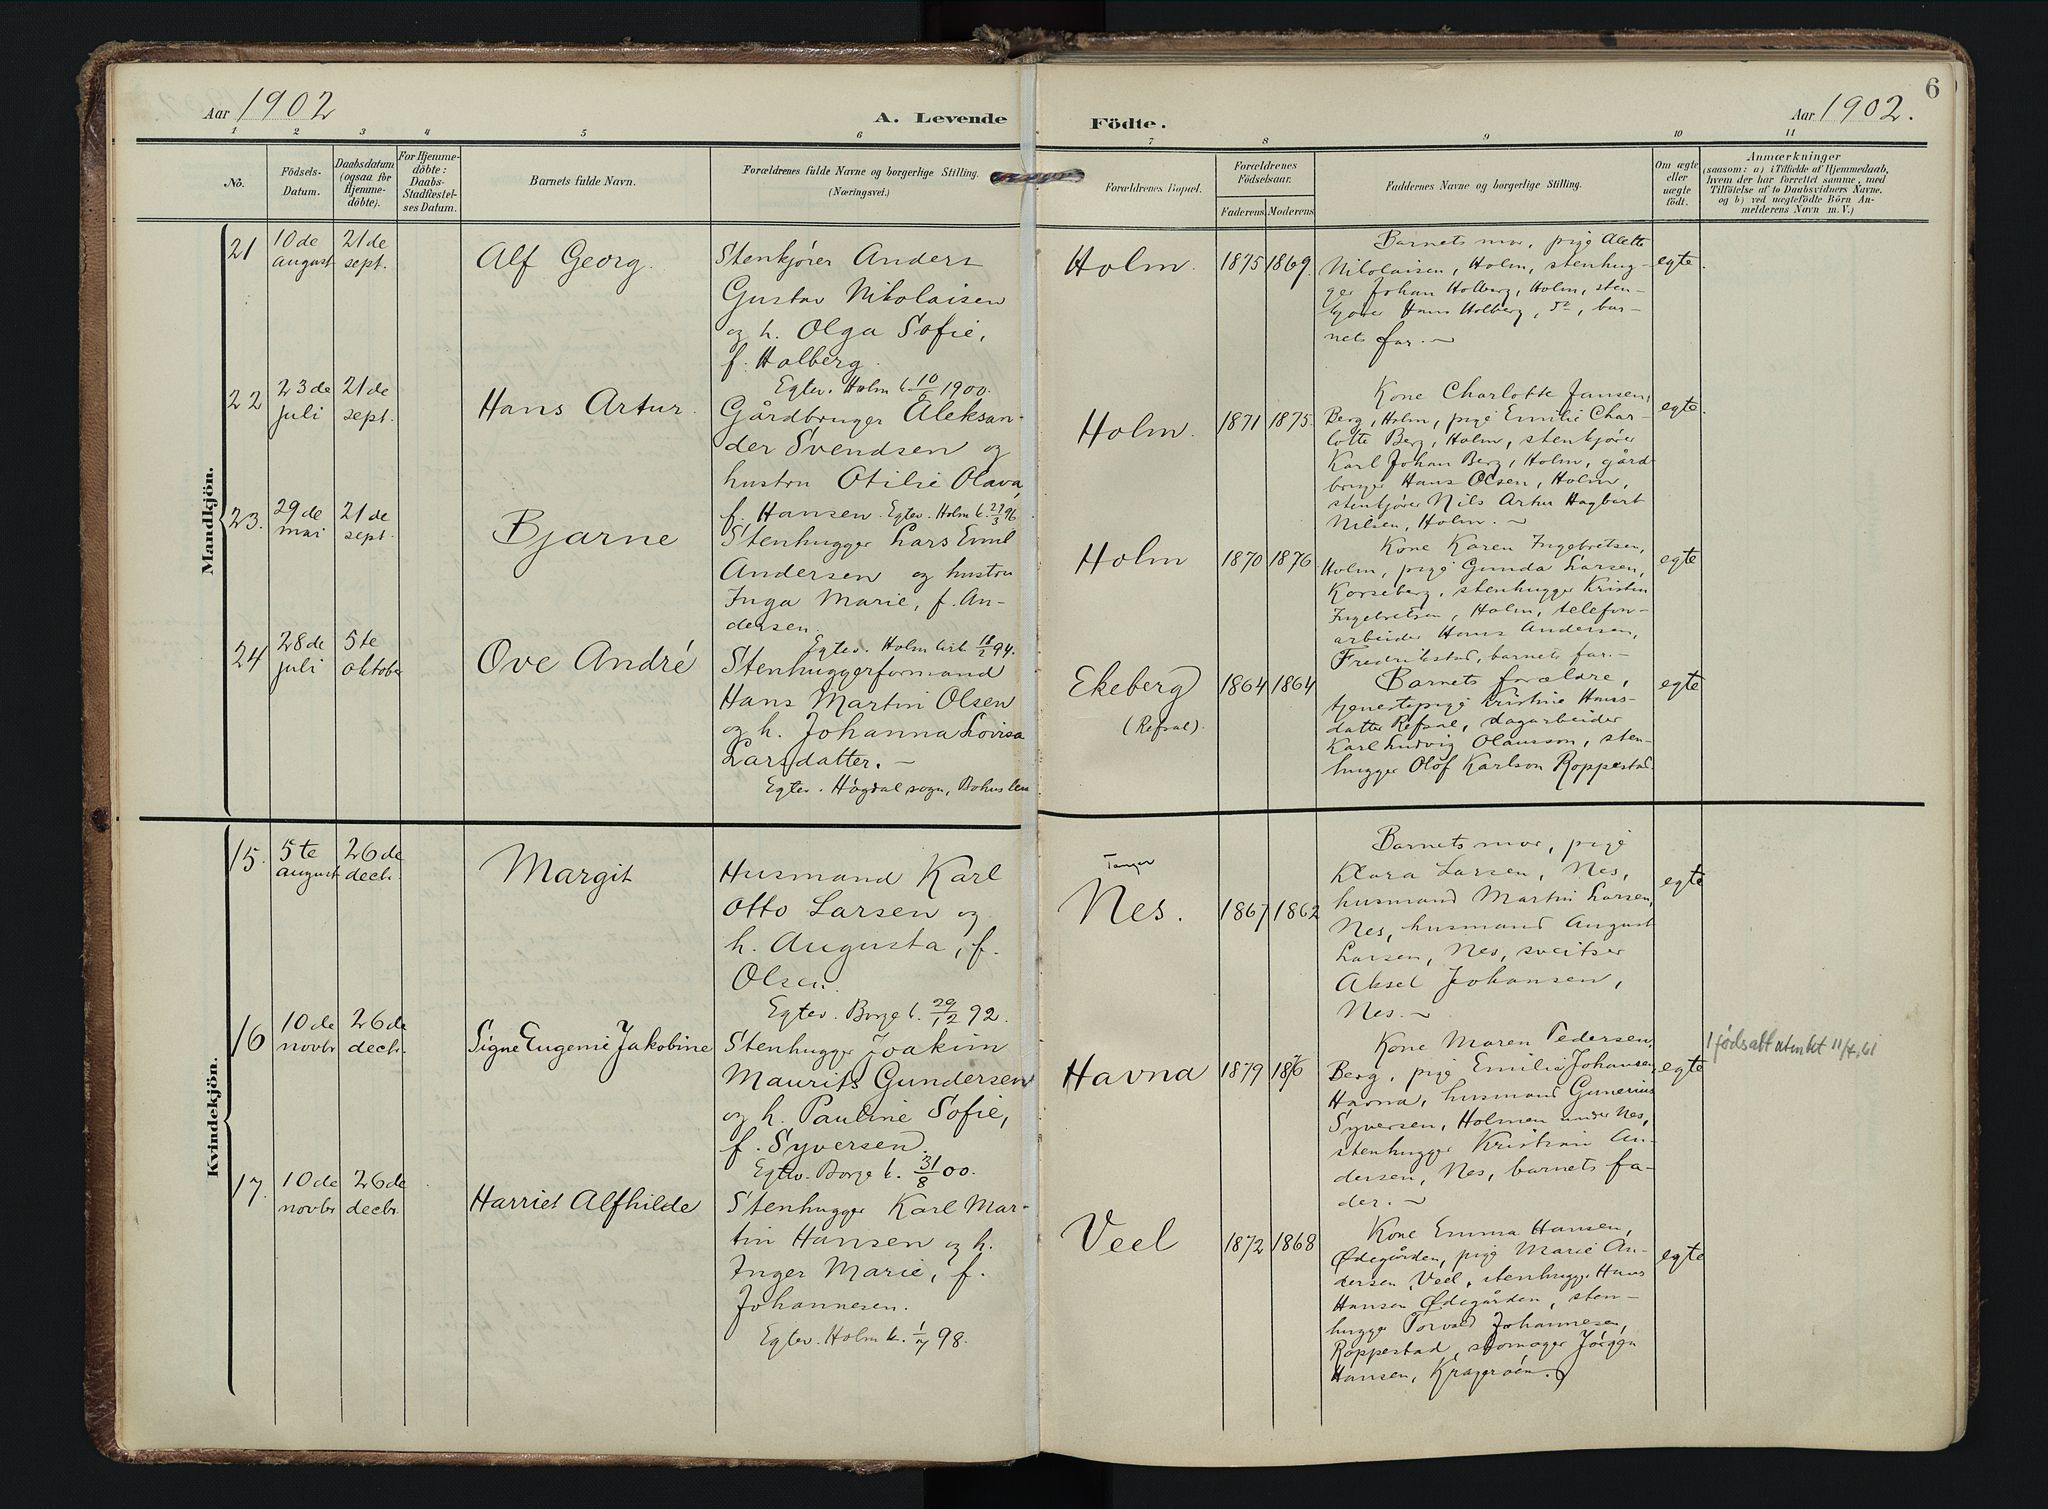 Aar 1902
A. Levende
1 2 3 4 5 6
No.
Födsels-
Datum.
Daabsdatum
(ogsaa for
Hjemme-
döbte).
For Hjemme-
döbte:
Daabs-
Stadfæstel-
ses Datum.
Barnets fulde Navn.
Forældrenes fulde Navne og borgerlige Stilling.
(Næringsvei.)
Mandkjön.
21
10de
august
21de
sept.
Alf Georg.
Stenkjører Anders
Gustav Nikolaisen
og h. Olga Sofie,
f. Holberg.
Egtev. Holm k. 1900.
22
23de
juli
21de
sept.
Hans Artur.
Gårdbruger Aleksan-
der Svendsen og
hustru Otilie Olava,
f. Hansen. Egtev. Holm k. 27/3 96
23.
29de
mai
21de
sept.
Bjarne
Stenhugger Lars Emil
Andersen og hustru
Inga Marie, f. An-
dersen.
Egtev. Holm kirk 18/2 94.
24
28de
juli
5te
oktober
Ove André
Stenhuggerformand
Hans Martin Olsen
og h. Johanna Lovisa
Larsdatter. —
Egtev. Högdal sogn, Bohuslen
Kvindekjön.
15.
5te
august
26de
decbr.
Margit
Husmand Karl
Otto Larsen og
h. Augusta, f.
Olsen.
Egtev. Borge k. 29/12 92.
16
10de
novbr
26de
decbr.
Signe Eugenie Jakobine
Stenhugger Joakim
Maurits Gundersen
og h. Pauline Sofie,
f. Syversen.
Egtev. Borge k. 31/8 00.
17.
10de
novbr
26de
decbr
Harriet Alfhilde
Stenhugger Karl Mar-
tin Hansen og h.
Inger Marie, f.
Johannesen.
Egtev. Holm k. 1/7 98.
6
Aar 1902.
Födte.
7 8 9 10 11
Forældrenes Bopæl.
Forældrenes
Födselsaar.
Faderens Moderens
Faddernes Navne og borgerlige Stilling.
Om ægte
eller
uægte
födt.
Anmærkninger
(saasom: a) i Tilfælde af Hjemmedaab,
hvem der har forrettet samme, med
Tilföielse af to Daabsvidners Navne.
og b) ved uægtefödte Börn An-
melderens Navn m. V.)
Holm. 1875 1869.
Barnets mor, pige Alette
Nikolaisen, Holm, stenhug-
ger Johan Holberg, Holm, sten-
kjører Hans Holberg, bar-
nets far. —
egte.
Holm. 1871 1875.
Kone Charlotte Jansen,
Berg, Holm, pige Emilie Char-
lotte Berg, Holm, stenkjører
Karl Johan Berg, Holm, gård-
bruger Hans Olsen, Holm,
stenkjører Nils Artur Hagbart
Nilsen, Holm. —
egte.
Holm 1870 1876
Kone Karen Ingebretsen,
Holm, pige Gunda Larsen,
Korseberg, stenhugger Kristin
Ingebretsen, Holm, telefon-
arbeider Hans Andersen,
Fredrikstad, barnets far. —
egte
Ekeberg
(Refsal).
1864 1864
Barnets forældre,
tjenestepige Kristine Hans-
datter Refsal, dagarbeider
Karl Ludvig Olausson, sten-
hugger Olof Karlson Roppestad.
egte
Tanger
Nes. 1867 1862
Barnets mor, pige
Klara Larsen, Nes,
husmand Martin Larsen,
Nes, husmand August
Larsen, Nes, sveitser
Aksel Johansen,
Nes. —
egte
Havna 1879 1876
Kone Maren Pedersen,
Berg, pige Emilie Johansen,
Havna, husmand Gunerius
Syversen, Holmen under Nes,
stenhugger Kristian An-
dersen, Nes, barnets fa-
der. —
egte
1 fødsatt utentet 11/4.61
Veel 1872 1868
Kone Emma Hansen,
Ødegården, pige Marie An-
dersen Veel, stenhugger Hans
Hansen Ødegården, sten-
hugger Torvald Johannesen,
Roppestad, skomager Jörgen
Hansen, Kragerøen.
egte